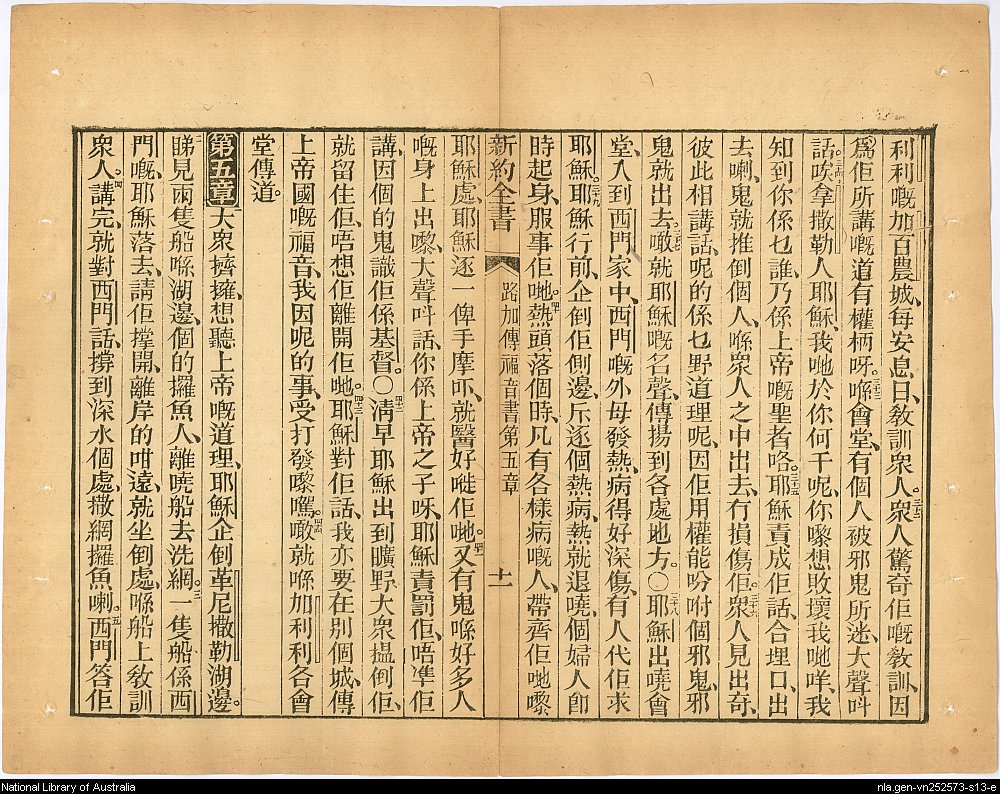 利利嘅加百農城、每安息日、敎訓衆人。三十二衆人驚奇佢嘅敎訓、因
爲佢所講嘅道有權柄呀。三十三喺會堂、有個人被邪鬼所迷、大聲叫
話、三十四唉、拿撒勒人耶穌、我哋於你何干呢、你嚟想敗壞我哋咩、我
知到你係乜誰、乃係上帝嘅聖者咯。三十五耶穌責成佢話、合埋口、出
去喇、鬼就推倒個人、喺衆人之中出去、冇損傷佢。三十六衆人見出奇、
彼此相講話、呢的係乜野道理呢、因佢用權能吩咐個邪鬼、邪
鬼就出去。三十七噉就耶穌嘅名聲、傳揚到各處地方。〇三十八耶穌出嘵會
堂、入到西門家中、西門嘅外母發熱、病得好深傷、有人代佢求
耶穌。三十九耶穌行前、企倒佢側邊、斥逐個熱病、熱就退嘵、個婦人卽
時起身、服事佢哋。四十熱頭落個時、凡有各樣病嘅人、帶齊佢哋嚟
新約全書 路加傳福音書第五章 十一
耶穌處、耶穌逐一俾手摩吓、就醫好嘥佢哋。四十一又有鬼喺好多人
嘅身上出嚟、大聲叫話、你係上帝之子呀、耶穌責罰佢、唔準佢
講、因個的鬼識佢係基督。〇四十二淸早耶穌出到曠野、大衆揾倒佢、
就留住佢、唔想佢離開佢哋。四十三耶穌對佢話、我亦要在別個城、傳
上帝國嘅福音、我因呢的事、受打發嚟嘅。四十四噉就喺加利利各會
堂傳道。
第五章 大衆擠擁、想聽上帝嘅道理、耶穌企倒革尼撒勒湖邊。
二睇見兩隻船喺湖邊、個的攞魚人、離嘵船去洗網。三一隻船係西
門嘅、耶穌落去、請佢撑開、離岸的咁遠、就坐倒處、喺船上敎訓
衆人。四講完、就對西門話、撑到深水個處、撒網攞魚喇。五西門答佢
National Library of Australia
nla.gen-vn252573-s13-e